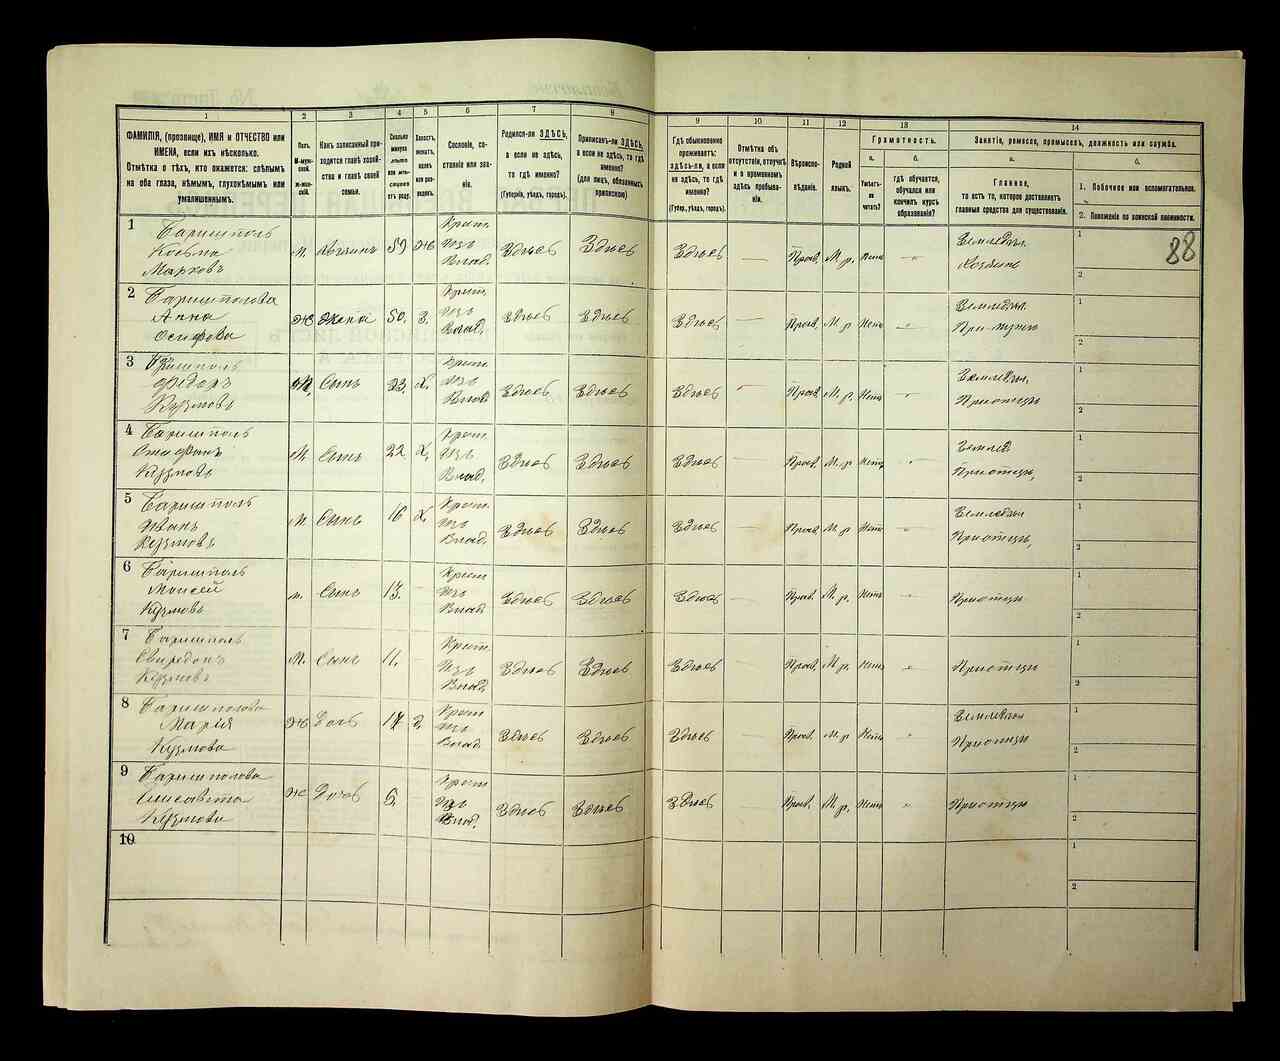 1 2 3 4 5 6 7 8 9 10 11 12 13 14
ФАМИЛІЯ, (прозвище), ИМЯ и ОТЧЕСТВО или
ИМЕНА, если ихъ нѣсколько.
Отмѣтка о тѣхъ, кто окажется: слѣпымъ
на оба глаза, нѣмымъ, глухонѣмымъ или
умалишеннымъ.
Полъ.
М-муж-
ской.
ж-жен-
скій.
Какъ записанный при-
ходится главѣ хозяй-
ства и главѣ своей
семьи.
Сколько
минуло
лѣтъ
или мѣ-
сяцевъ
отъ роду.
Холостъ,
женатъ,
вдовъ
или раз-
веденъ.
Сословіе, со-
стояніе или зва-
ніе.
Родился-ли ЗДѢСЬ,
а если не здѣсь,
то гдѣ именно?
(Губернія, уѣздъ, городъ).
Приписанъ-ли ЗДѢСЬ,
а если не здѣсь, то гдѣ
именно?
(для лицъ, обязанныхъ
припискою)
Гдѣ обыкновенно
проживаетъ:
здѣсь-ли, а если
не здѣсь, то гдѣ
именно?
(Губер, уѣздъ, городъ).
Отмѣтка объ
отсутствіи, отлучкѣ
и о временномъ
здѣсь пребыва-
ніи.
Вѣроиспо-
вѣданіе.
Родной
языкъ.
Грамотность.
а.
Умѣетъ-
ли
читать?
б.
гдѣ обучается,
обучался или
кончилъ курсъ
образованія?
Занятіе, ремесло, промыселъ, должность или служба.
а.
Главное,
то есть то, которое доставляетъ
главныя средства для существованія.
б.
1. Побочное или вспомогательное.
2. Положеніе по воинской повинности.
88
1 Баришполь
Козьма
Марковъ
м. Хозяинъ 59 ж Крест. изъ Влад. Здѣсь Здѣсь Здѣсь — Прав. М.р. Нетъ — Земледѣл. Хозяинъ 1 2
2 Баришполова
Анна
Осифова
ж Жена 50. З. Крест. изъ Влад. Здѣсь Здѣсь Здѣсь — Прав. М.р Нетъ Земледѣл. При мужѣ 1 2
3 Баришполь
Федоръ
Кузмовъ
М. Сынъ 23. Х. Крест. изъ Влад Здѣсь Здѣсь Здѣсь — Прав. М.р. Нетъ Земледѣл. При отцѣ 1 2
4 Баришполь
Стефанъ
Кузмовъ
М. Сынъ 22 Х. Крест. изъ Влад. Здѣсь Здѣсь Здѣсь — Прав. М.р. Нетъ Землед При отцѣ, 1 2
5 Баришполь
Иванъ
Кузмовъ
М. Сынъ 16 Х. Крест. изъ Влад. Здѣсь Здѣсь Здѣсь — Прав. М.р. Нетъ Земледѣл При отцѣ, 1 2
6 Баришполь
Моисей
Кузмовъ
м. Сынъ 13. — Крест изъ Влад Здѣсь Здѣсь Здѣсь — Прав. М.р. Нетъ При отцѣ 1 2
7 Баришполь
Свиридонъ
Кузмовъ
М. Сынъ 11. — Крест. изъ Влад. Здѣсь Здѣсь Здѣсь — Прав. М.р. Нетъ При отцѣ 1 2
8 Баришполова
Марія
Кузмова
ж Дочь 17 Крест изъ Влад Здѣсь Здѣсь Здѣсь — Прав. М.р Нетъ Земледѣл При отцѣ 1 2
9 Баришполова
Елисавета
Кузмова
ж Дочь 6. Крест изъ Влад. Здѣсь Здѣсь Здѣсь — Прав. М.р. Нетъ При отцѣ 1 2
10 1 2